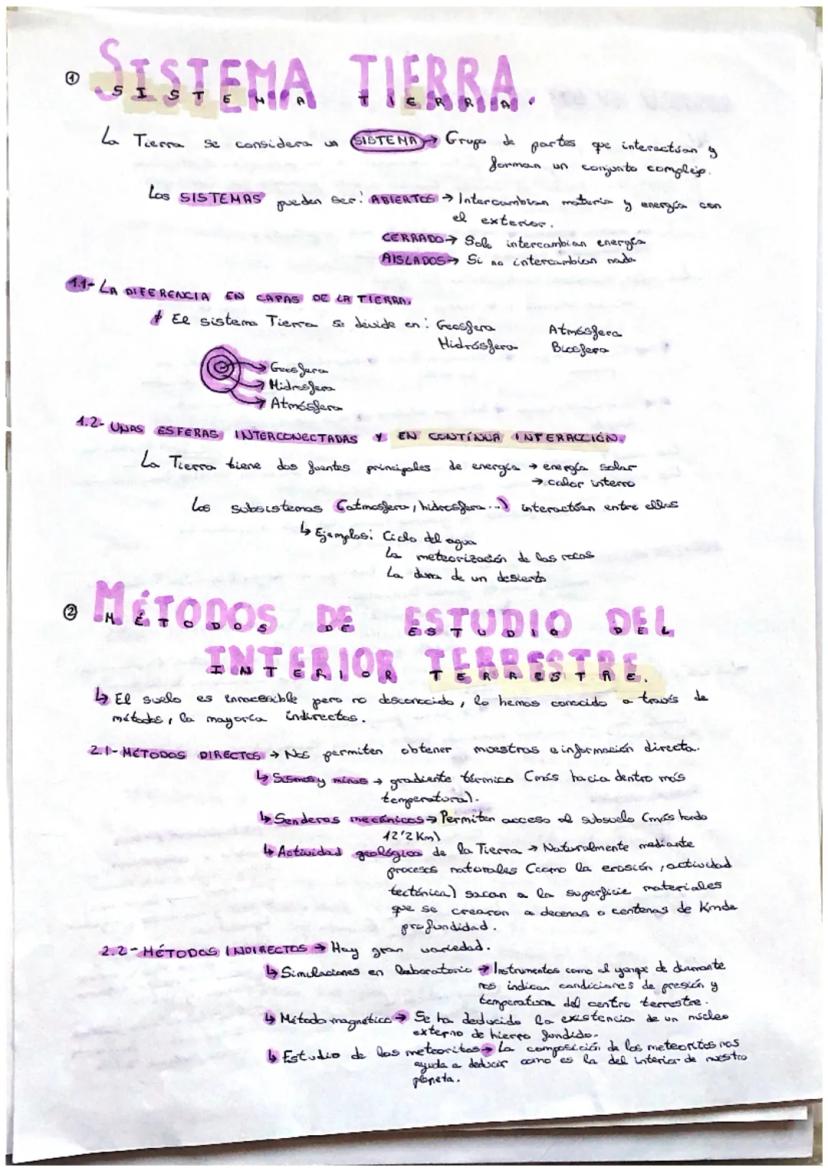 ① SISTEMA TIERRA.
SISTEMA TIERRA.
La Tierra se considera un SISTEMA → Grupo de partes que interactúan y
forman un conjunto complejo.
Los SISTEMAS pueden ser: ABIERTOS → Intercambian materia y energía con
el exterior.
CERRADO → Solo intercambian energía
AISLADOS → Si no intercambian nada
1.1- LA DIFERENCIA EN CAPAS DE LA TIERRA.
El sistema Tierra se divide en: Geosfera Atmósfera
Hidrósfera Biosfera
→ Geosfera
→ Hidrosfera
→ Atmósfera
1.2- UNAS ESFERAS INTERCONECTADAS Y EN CONTÍNUA INTERACCIÓN.
La Tierra tiene dos fuentes principales de energía → energía solar
→ calor interno
Los subsistemas (atmosfera, hidrosfera...) interactúan entre ellos
↳ Ejemplos: Ciclo del agua
La meteorización de las rocas
La duna de un desierto
② MÉTODOS DE ESTUDIO DEL
MÉTODOS DE ESTUDIO DEL
INTERIOR TERRESTRE.
INTERIOR TERRESTRE.
↳ El suelo es innacesible pero no desconocido, lo hemos conocido a través de
métodos, la mayoría indirectos.
2.1- MÉTODOS DIRECTOS → Nos permiten obtener muestras e información directa.
↳ y minas → gradiente térmico (más hacia dentro más
temperatura).
↳ Senderos mecánicos → Permiten acceso al subsuelo (más hondo
12'2 Km)
↳ Actividad geológica de la Tierra → Naturalmente mediante
procesos naturales (como la erosión, actividad
tectónica) sacan a la superficie materiales
que se crearon a decenas o centenas de Km de
profundidad.
2.2- MÉTODOS INDIRECTOS → Hay gran variedad.
↳ Simulaciones en laboratorio → Instrumentos como el yunque de diamante
nos indican condiciones de presión y
temperatura del centro terrestre.
↳ Método magnético → Se ha deducido la existencia de un núcleo
externo de hierro fundido.
↳ Estudio de los meteoritos → La composición de los meteoritos nos
ayuda a deducir como es la del interior de nuestro
planeta.